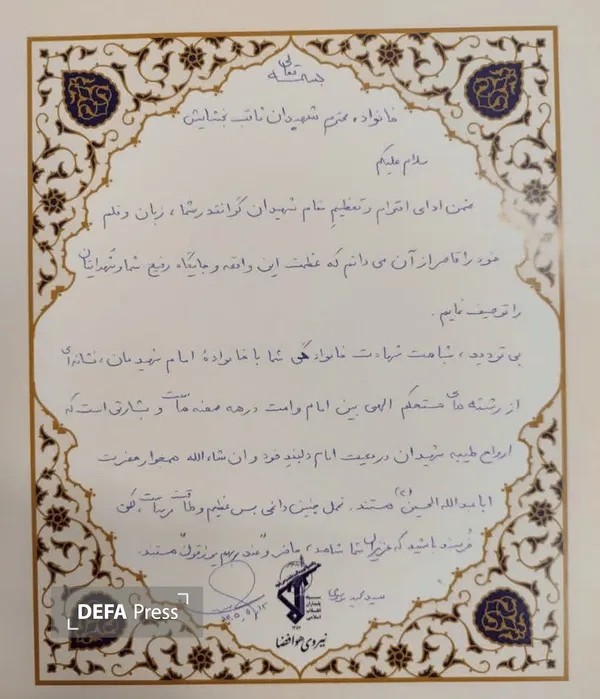 بسمه تعالی
خانواده محترم شهیدان نائب بخشایش
سلام علیکم
ضمن ادای احترام و تعظیم مقام شهیدان گرانقدر شما، زبان و قلم
خود را قاصر از آن می دانم که عظمت این واقعه و جایگاه رفیع شما و شهدایتان
را توصیف نمایم.
بی تردید، شباهت شهادت خانوادگی شما با خانوادهٔ امام شهیدمان، نشانه‌ای
از رشته های مستحکم الهی بین امام و امت در همه صحنه هاست و بشارتی است که
ارواح طیبه شهیدان در معیت امام دلبند خود و ان شاءالله همجوار حضرت
اباعبدالله الحسین هستند. تحمل چنین داغی بس عظیم و طاقت فرساست، لکن
خُرسند باشید که عزیزان شما شاهد، حاضر و "عند ربهم یرزقون" هستند.
سید مجید موسوی
سپاه
پاسداران
انقلاب
اسلامی
نیروی هوافضا
DEFA Press